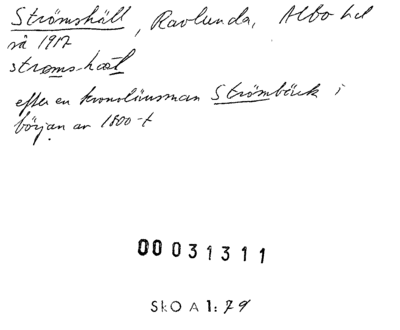 Strömshäll, Ravlunda, Albo hd
så 1917
strømshæl
efter en kronolänsman Strömbäck i
början av 1800-t
00031311
SkO A 1:79